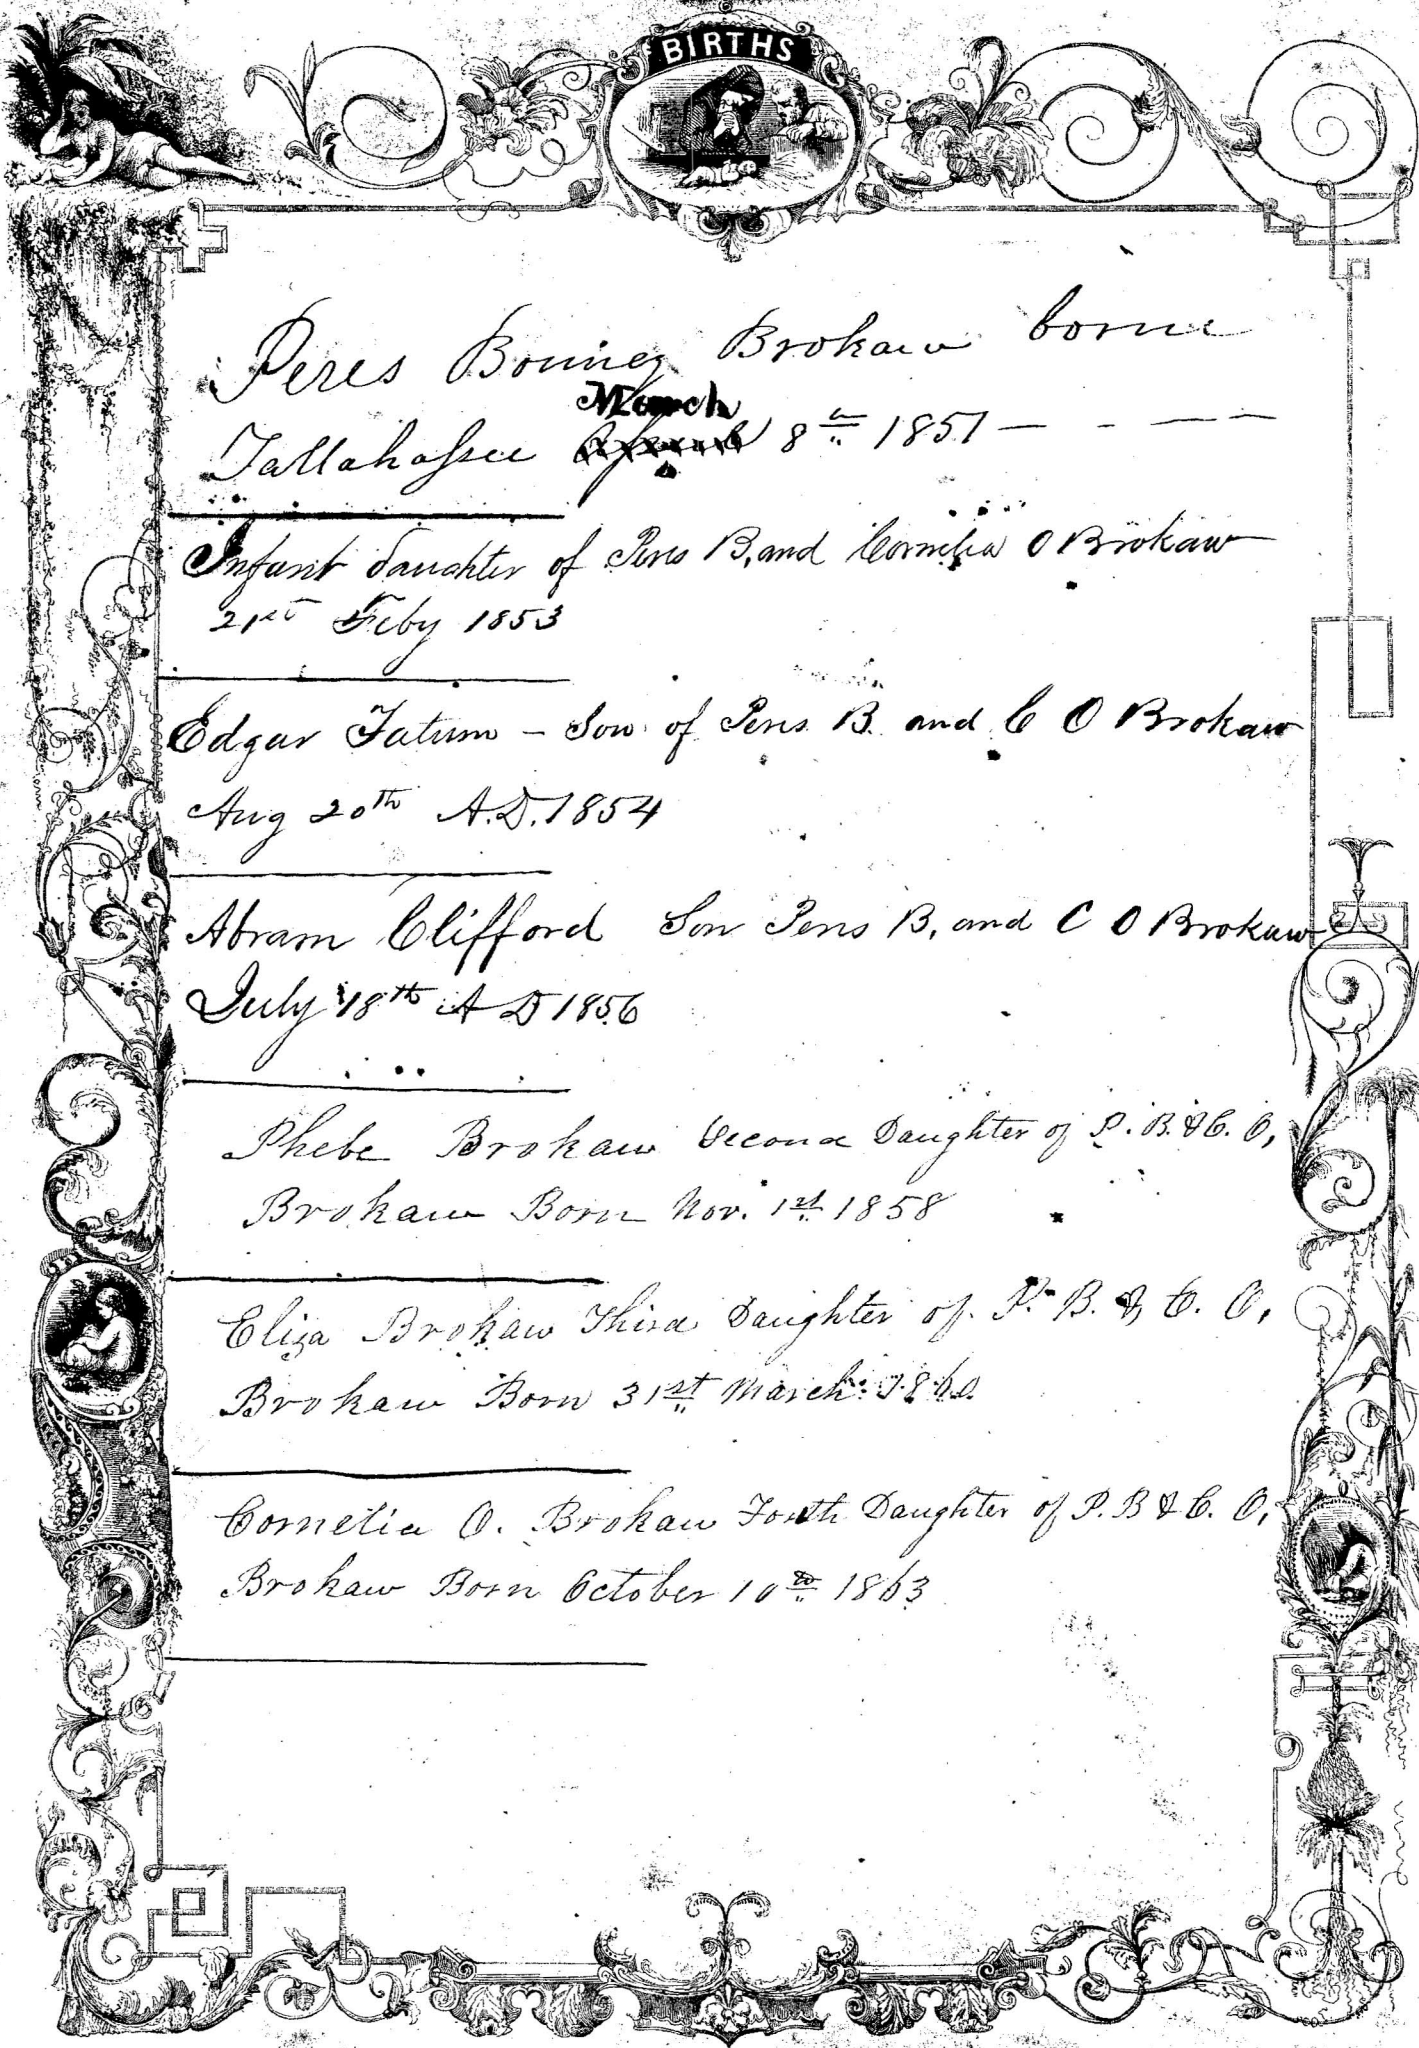 BIRTHS
Peres Bonney Brokaw borne
March
Tallahassee 8th 1851 — - — —
Infant daughter of Peres B, and Cornelia O Brokaw
21st Feby 1853
Edgar Tatum – Son of Peres B. and C O Brokaw
Aug 20th A.D. 1854
Abram Clifford Son Peres B, and C O Brokaw
July 18th A D 1856
Phebe Brokaw Second Daughter of P. B. & C. O,
Brokaw Born Nov. 1st 1858
Eliza Brokaw Third Daughter of P. B. & C. O,
Brokaw Born 31st March 1860
Cornelia O. Brokaw Forth Daughter of P. B & C. O,
Brokaw Born October 10th 1863